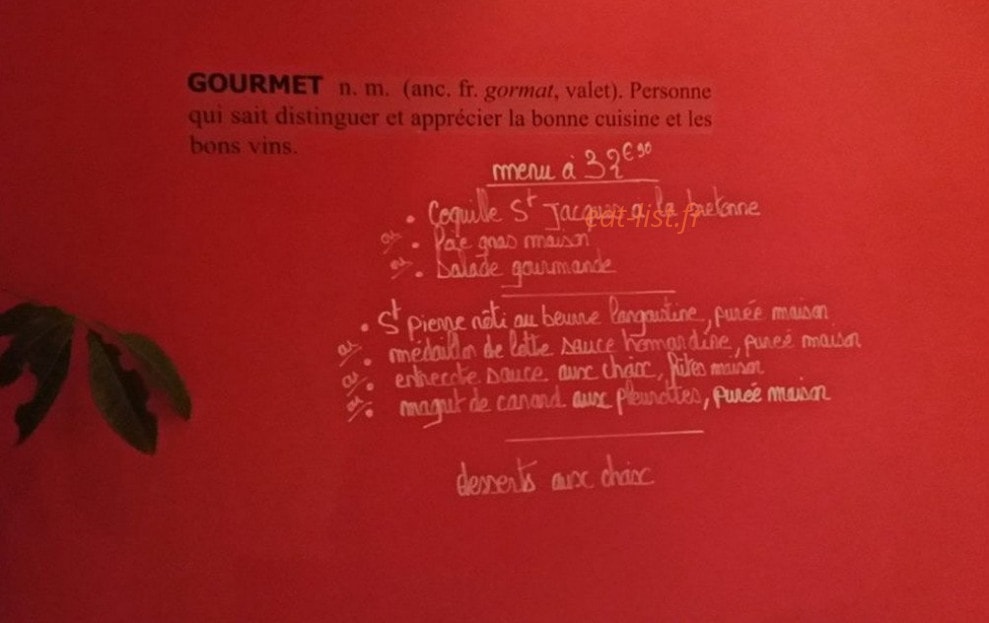 GOURMET n. m. (anc. fr. gormat, valet). Personne
qui sait distinguer et apprécier la bonne cuisine et les
bons vins.
menu à 32€90
• Coquille St Jacques à la bretonne
eat-list.fr
ou • Foie gras maison
ou • Salade gourmande
• St pierre rôti au beurre langoustine, purée maison
ou • médaillon de lotte sauce homardine, pureé maison
ou • entrecote sauce aux choix, frites maison
ou • magret de canard aux pleurottes, purée maison
desserts aux choix